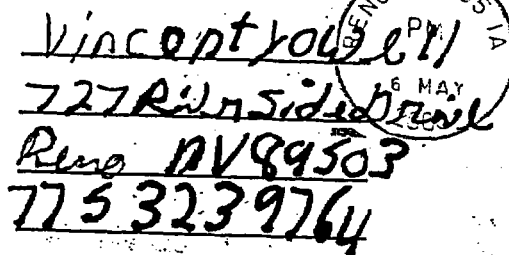 Vincent Powell
727 Riverside Drive
Reno NV 89503
775 323 9764
PM
6 MAY